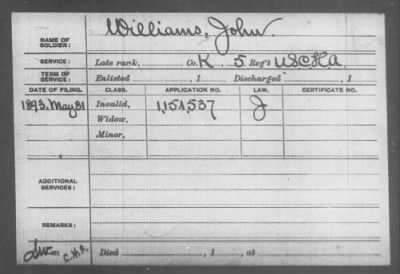 NAME OF SOLDIER: Williams, John
SERVICE: Late rank, Co. K 5 Reg't U.S.C.H.A.
TERM OF SERVICE: Enlisted , 1 Discharged , 1
DATE OF FILING. CLASS. APPLICATION NO. LAW. CERTIFICATE NO.
1893. May 31 Invalid, 1,151,537 J
Widow,
Minor,
ADDITIONAL SERVICES:
REMARKS:
Died , 1 , at